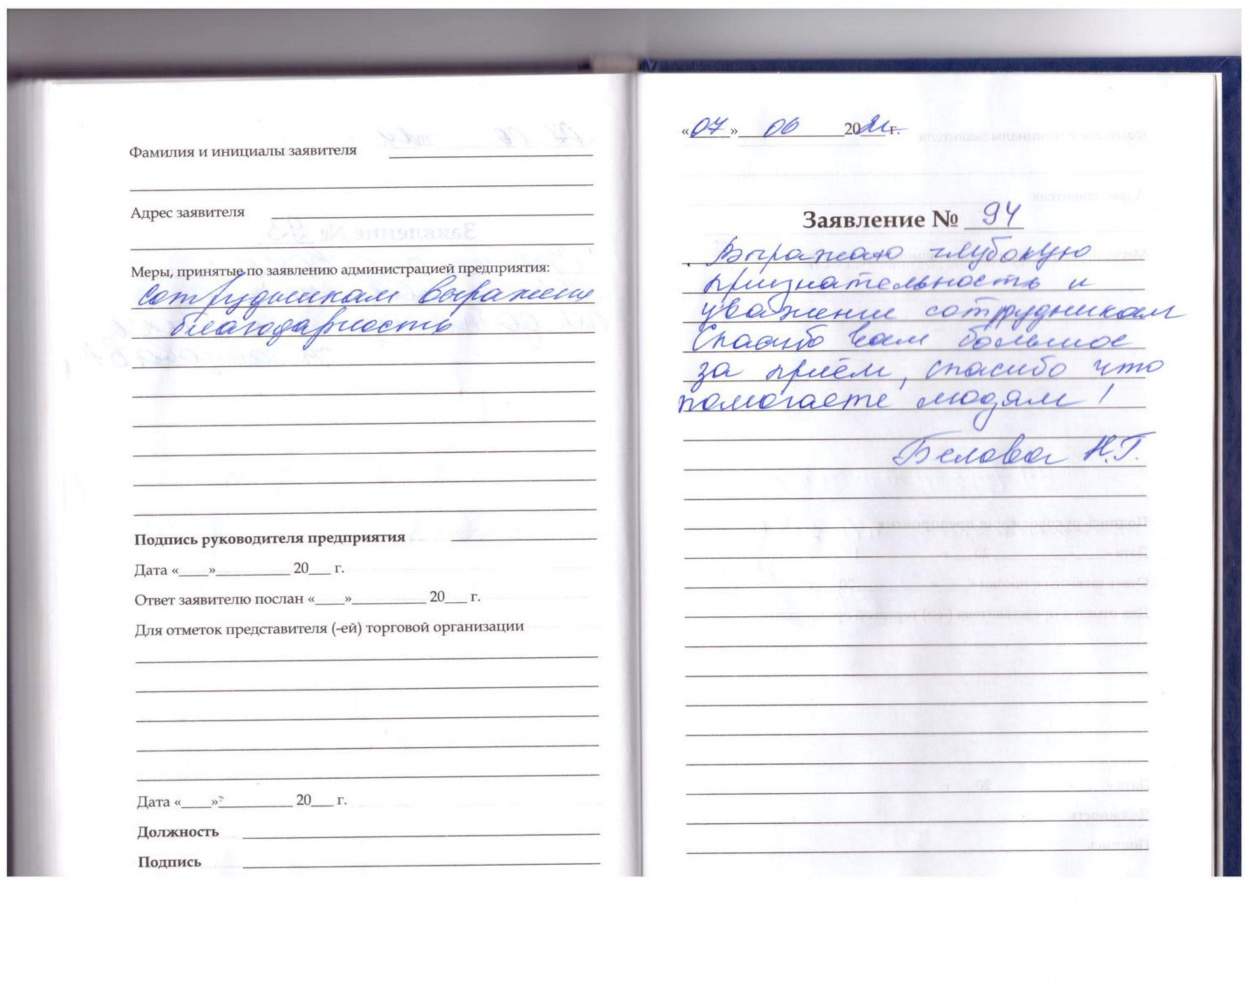 Фамилия и инициалы заявителя
Адрес заявителя
Меры, принятые по заявлению администрацией предприятия:
сотрудникам выражена
благодарность
Подпись руководителя предприятия
Дата «____»__________ 20___ г.
Ответ заявителю послан «____»__________ 20___ г.
Для отметок представителя (-ей) торговой организации
Дата «____»__________ 20___ г.
Должность
Подпись
«07» 06 20 г.
Заявление № 94
Выражаю глубокую
признательность и
уважение сотрудникам
Спасибо вам большое
за приём, спасибо что
помогаете людям!
Белова Н.Г.